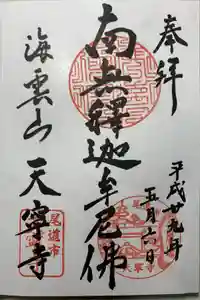 奉拝
平成廿九年
五月六日
南無釋迦牟尼佛
海雲山
天寧寺
尾道市